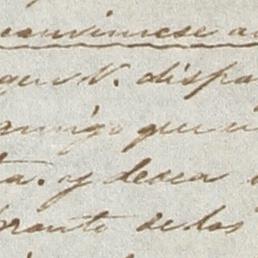 conviniese a
que V. dispo
amigo que u
ta. y desea
pronto de los